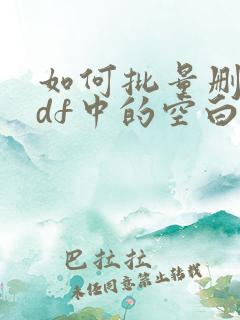 如何批量删
df中的空白
巴拉拉
未经同意禁止转载